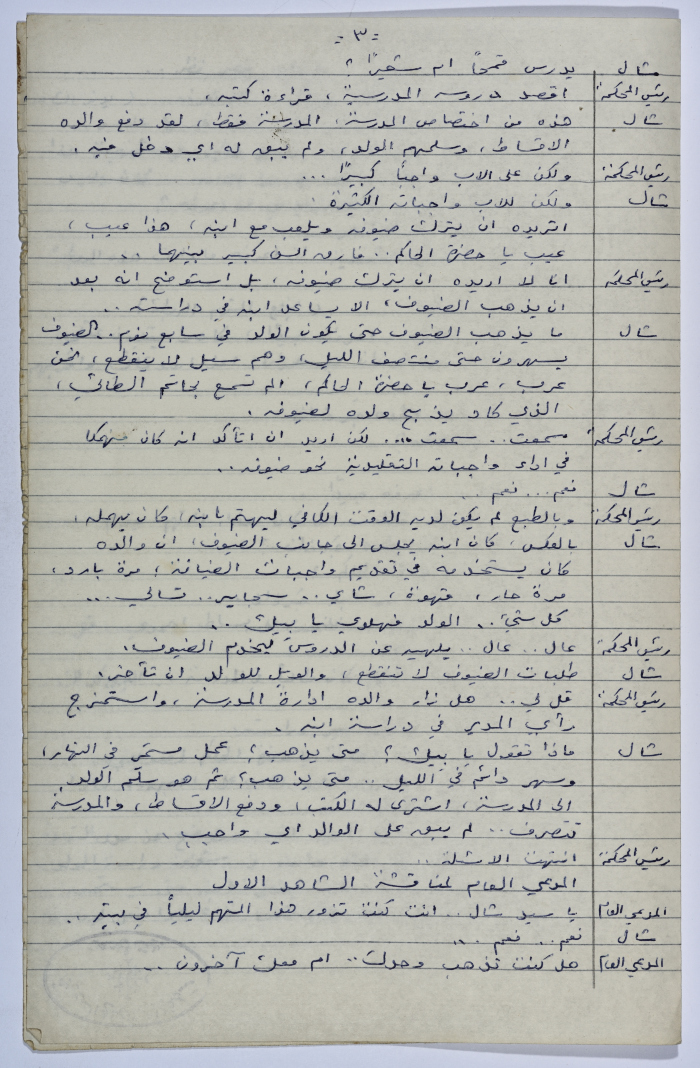 -٣-
شال يدرس قمحاً ام شعيرًا ؟
رئيس المحكمة اقصد دروسه المدرسية ، قراءة كتبه .
شال هذه من اختصاص المدرسة ، المدرسة فقط ، لقد دفع والده
الاقساط ، وسلمهم الولد ، ولم يبق له اي دخل فيه .
رئيس المحكمة ولكن على الاب واجباً كبيرًا ...
شال ولكن للاب واجباته الكثيرة .
اتريده ان يترك ضيوفه ويلعب مع ابنه ، هذا عيب ،
عيب يا حضرة الحاكم .. فارق السن كبير بينهما ..
رئيس المحكمة انا لا اريده ان يترك ضيوفه ، بل استوضح انه بعد
ان يذهب الضيوف ، الا يساعد ابنه في دراسته ..
شال ما يذهب الضيوف حتى يكون الولد في سابع نوم .. الضيوف
يسهرون حتى منتصف الليل ، وهم سيل لا ينقطع ، نحن
عرب ، عرب يا حضرة الحاكم ، الم تسمع بحاتم الطائي ،
الذي كاد يذبح ولده لضيوفه .
رئيس المحكمة سمعت .. سمعت ... لكن اريد ان اتأكد انه كان منهمكا
في اداء واجباته التقليدية نحو ضيوفه ..
شال نعم ... نعم ..
رئيس المحكمة وبالطبع لم يكن لديه الوقت الكافي ليهتم بابنه ، كان يهمله .
شال بالعكس ، كان ابنه يجلس الى جانب الضيوف ، ان والده
كان يستخدمه في تقديم واجبات الضيافة ، مرة بارد ،
مرة حار ، قهوة ، شاي .. سجاير .. تسالي ...
كل شيء .. الولد فهلوي يا بيك ..
رئيس المحكمة عال .. عال .. يلهيه عن الدروس ليخدم الضيوف ..
شال طلبات الضيوف لا تنقطع ، والويل للولد ان تأخر .
رئيس المحكمة قل لي .. هل زار والده ادارة المدرسة ، واستمزج
رأي المدير في دراسة ابنه .
شال ماذا تقول يا بيك ؟ متى يذهب ؟ عمل مستمر في النهار ،
وسهر دائم في الليل .. متى يذهب ؟ ثم هو سلّم الولد
الى المدرسة ، اشترى له الكتب ، ودفع الاقساط ، والمدرسة
تتصرف .. لم يبق على الوالد اي واجب .
رئيس المحكمة انتهت الاسئلة ..
المدعي العام لمناقشة الشاهد الاول
المدعي العام يا سيد شال .. انت كنت تزور هذا المتهم ليلياً في بيته ..
شال نعم .. نعم ...
المدعي العام هل كنت تذهب وحدك .. ام معك آخرون ..